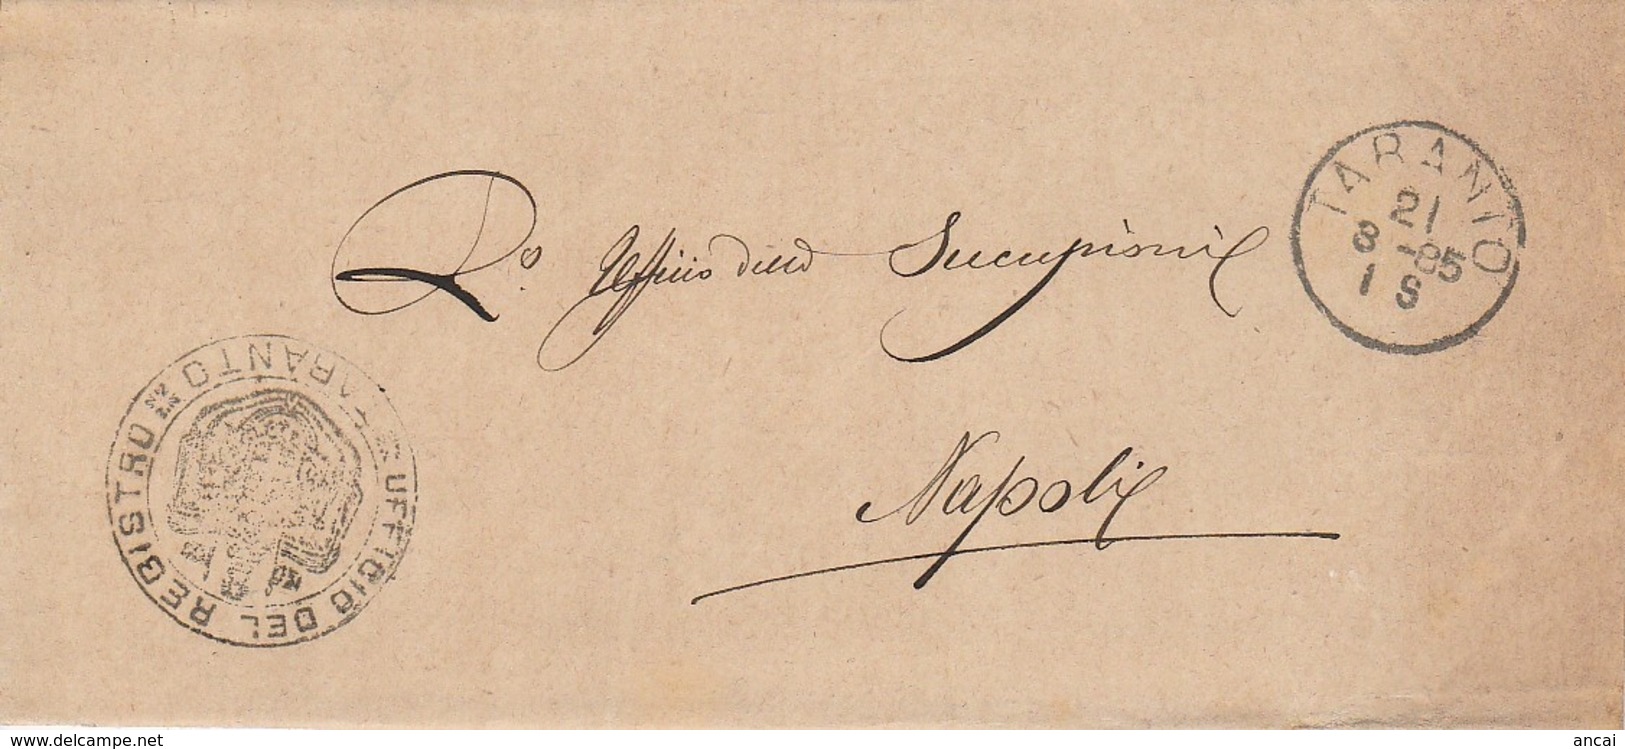 TARANTO
21
8 - 85
1 S
Ufficio delle Successioni
Napoli
UFFICIO DEL REGISTRO
TARANTO
www.delcampe.net
ancai